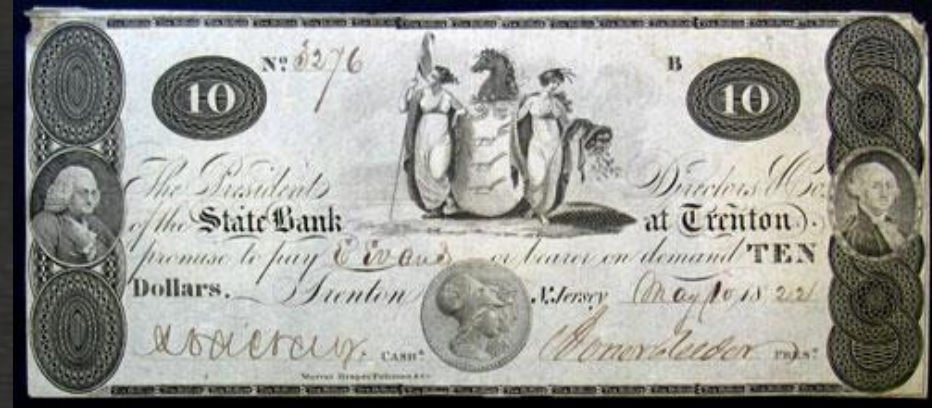 Nº 3276 B
10 10
The President Directors & Co.
of the State Bank at Trenton.
promise to pay Evans or bearer on demand TEN
Dollars. Trenton N. Jersey May 10 1822
CASHR PREST
Murray Draper Fairman & Co